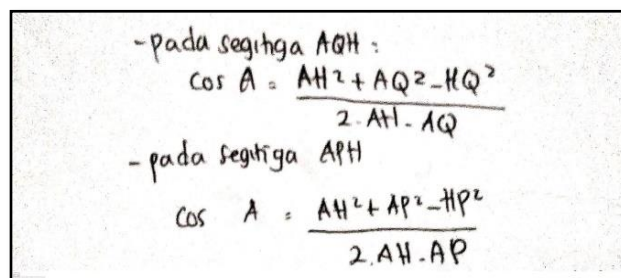 -pada segitiga AQH :
cos A = AH² + AQ² - HQ²
2 . AH . AQ
- pada segitiga APH
cos A = AH² + AP² - HP²
2 . AH . AP